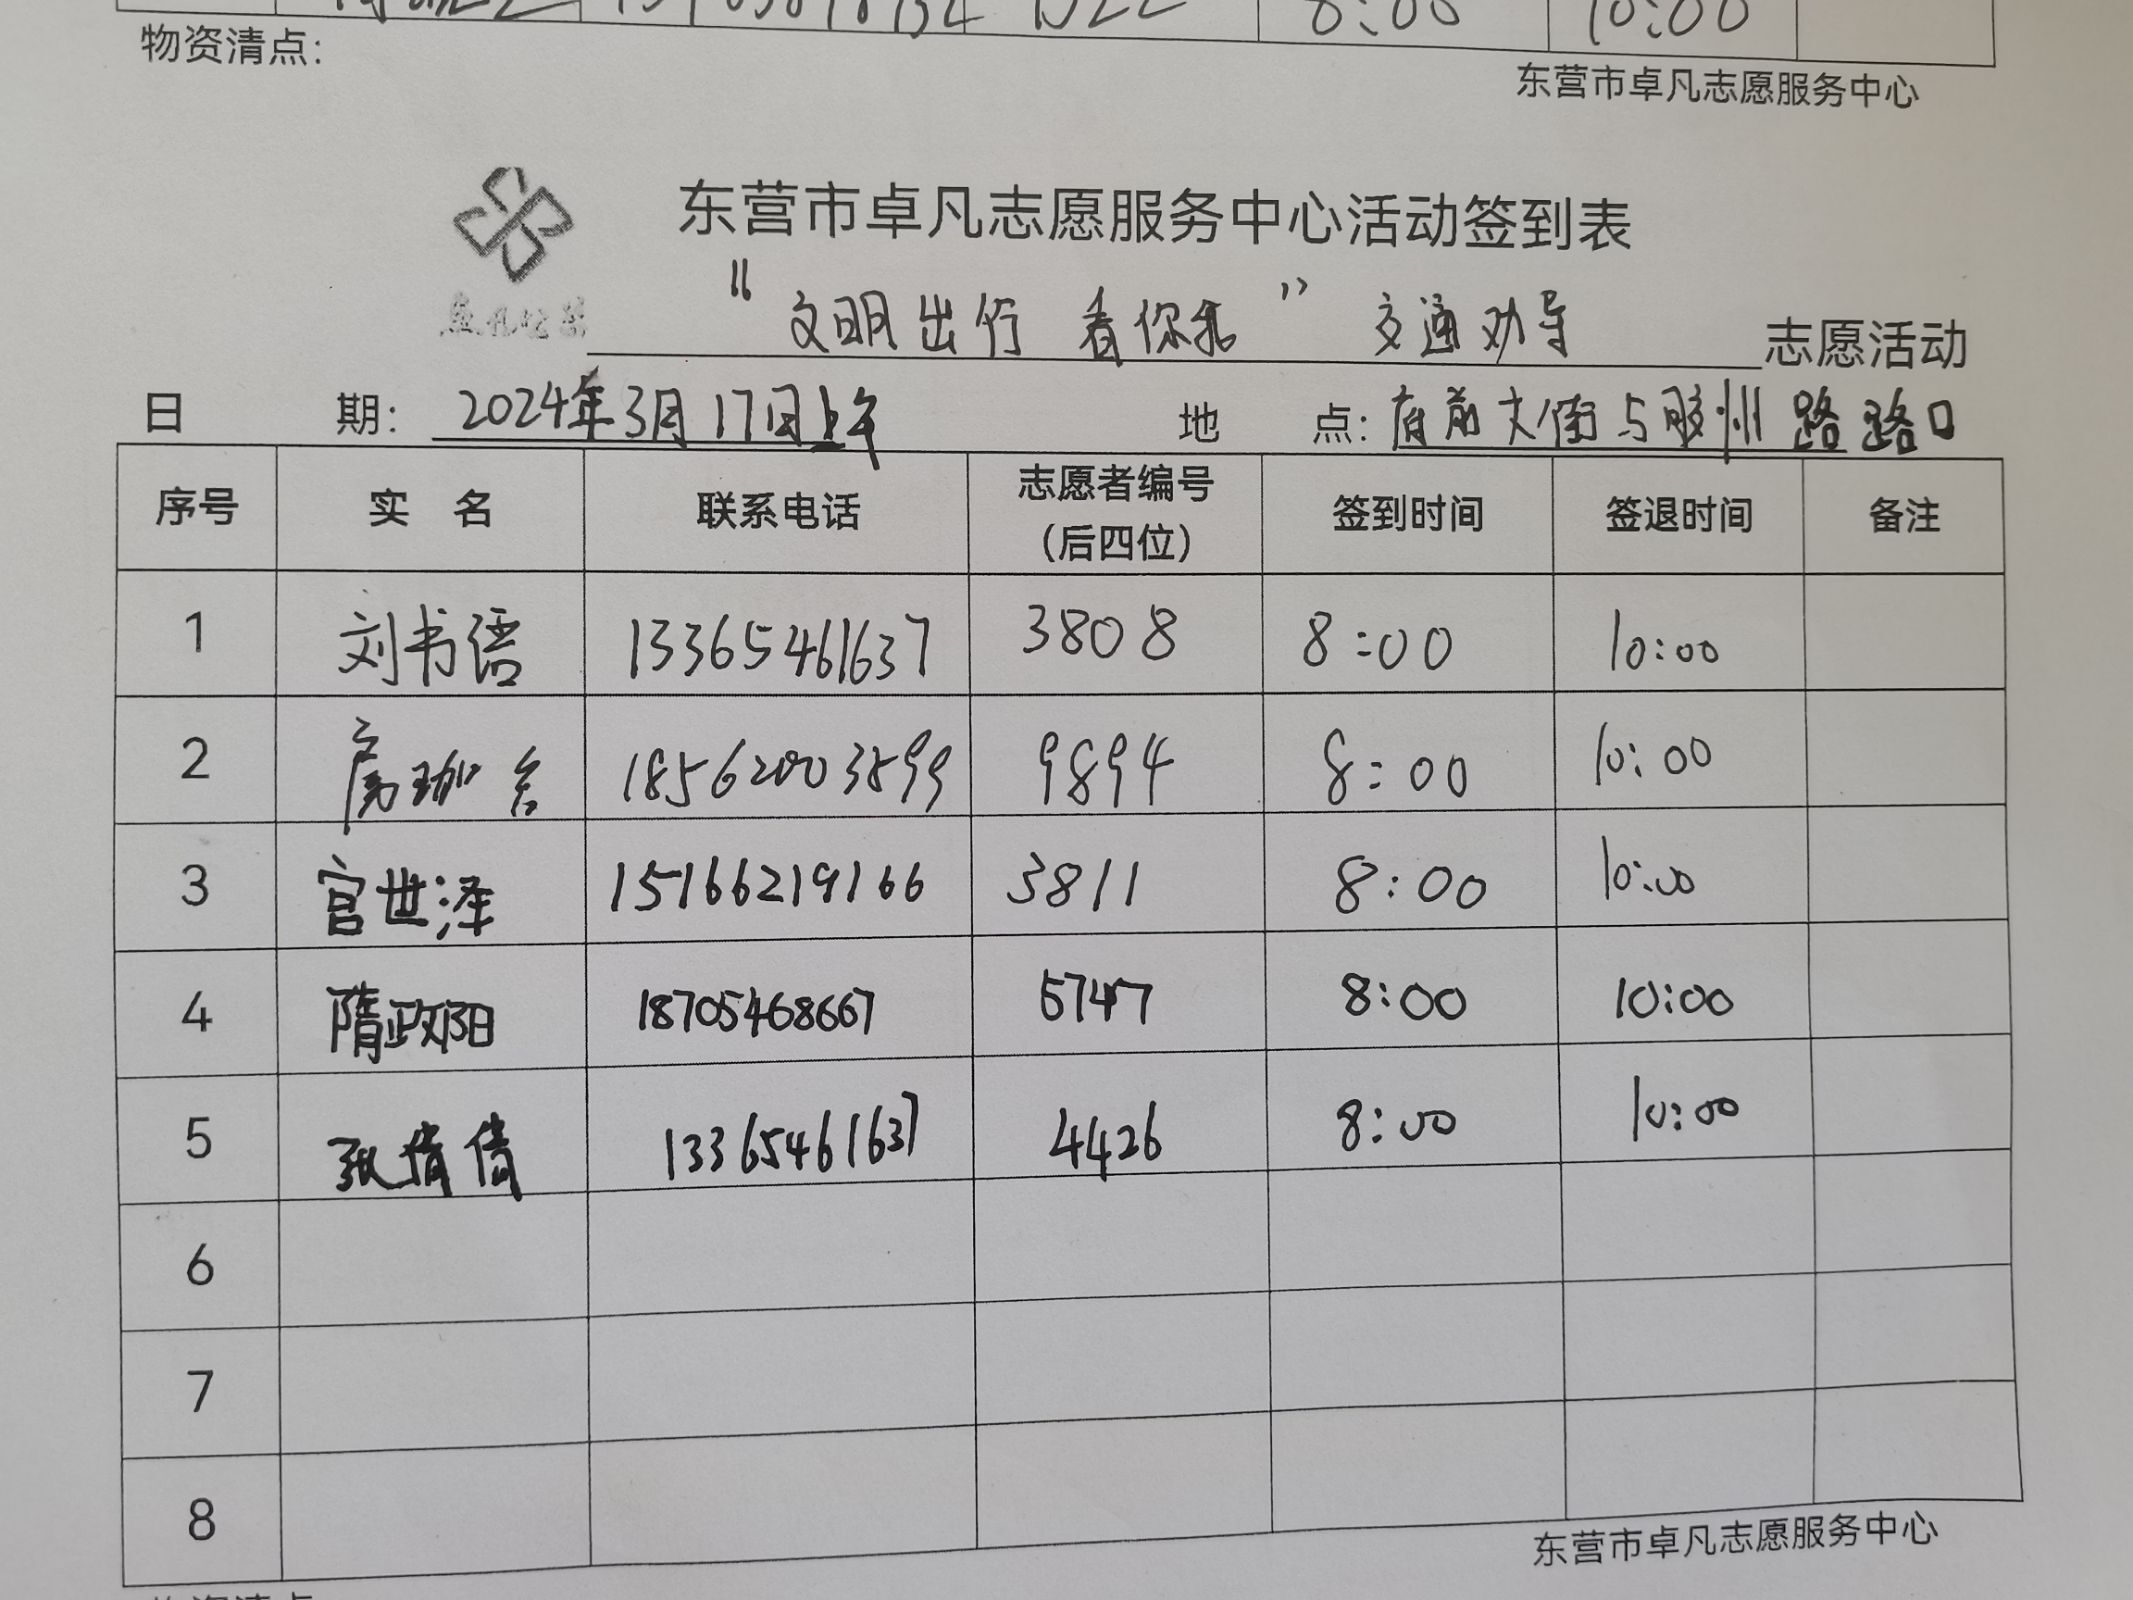 8:00 10:00
物资清点：
东营市卓凡志愿服务中心
东营市卓凡志愿服务中心活动签到表
“文明出行 看你我” 交通劝导 志愿活动
日 期： 2024年3月17日上午 地 点：府前大街与胶州路路口
序号 实 名 联系电话 志愿者编号（后四位） 签到时间 签退时间 备注
1 刘书语 13365461637 3808 8:00 10:00
2 18562003899 9894 8:00 10:00
3 宫世泽 15166219166 3811 8:00 10:00
4 隋政阳 18705468667 5747 8:00 10:00
5 张倩倩 13365461637 4426 8:00 10:00
6
7
8
东营市卓凡志愿服务中心